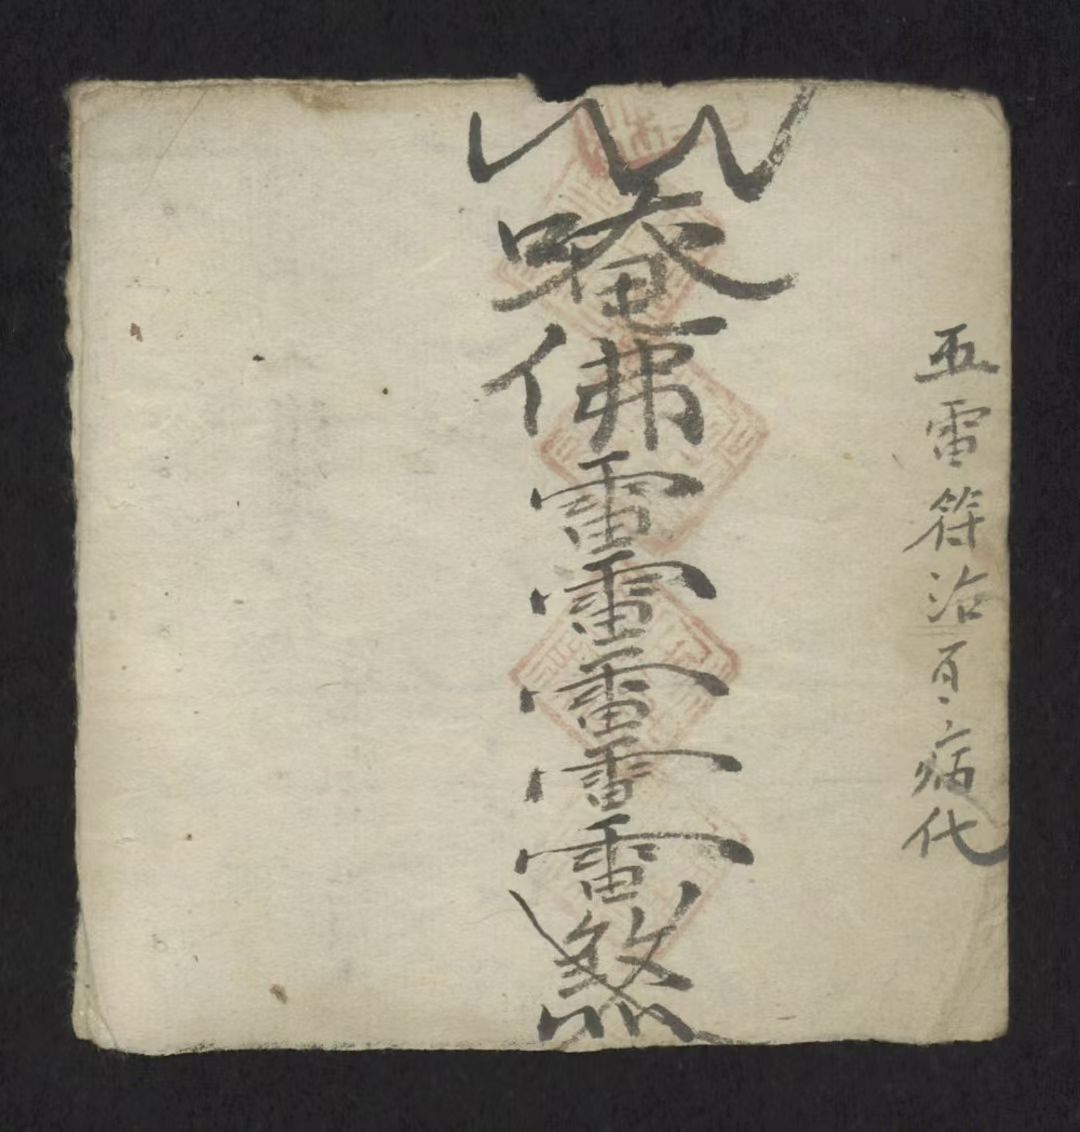 五雷符治百病化
唵佛雷雷雷雷雷煞